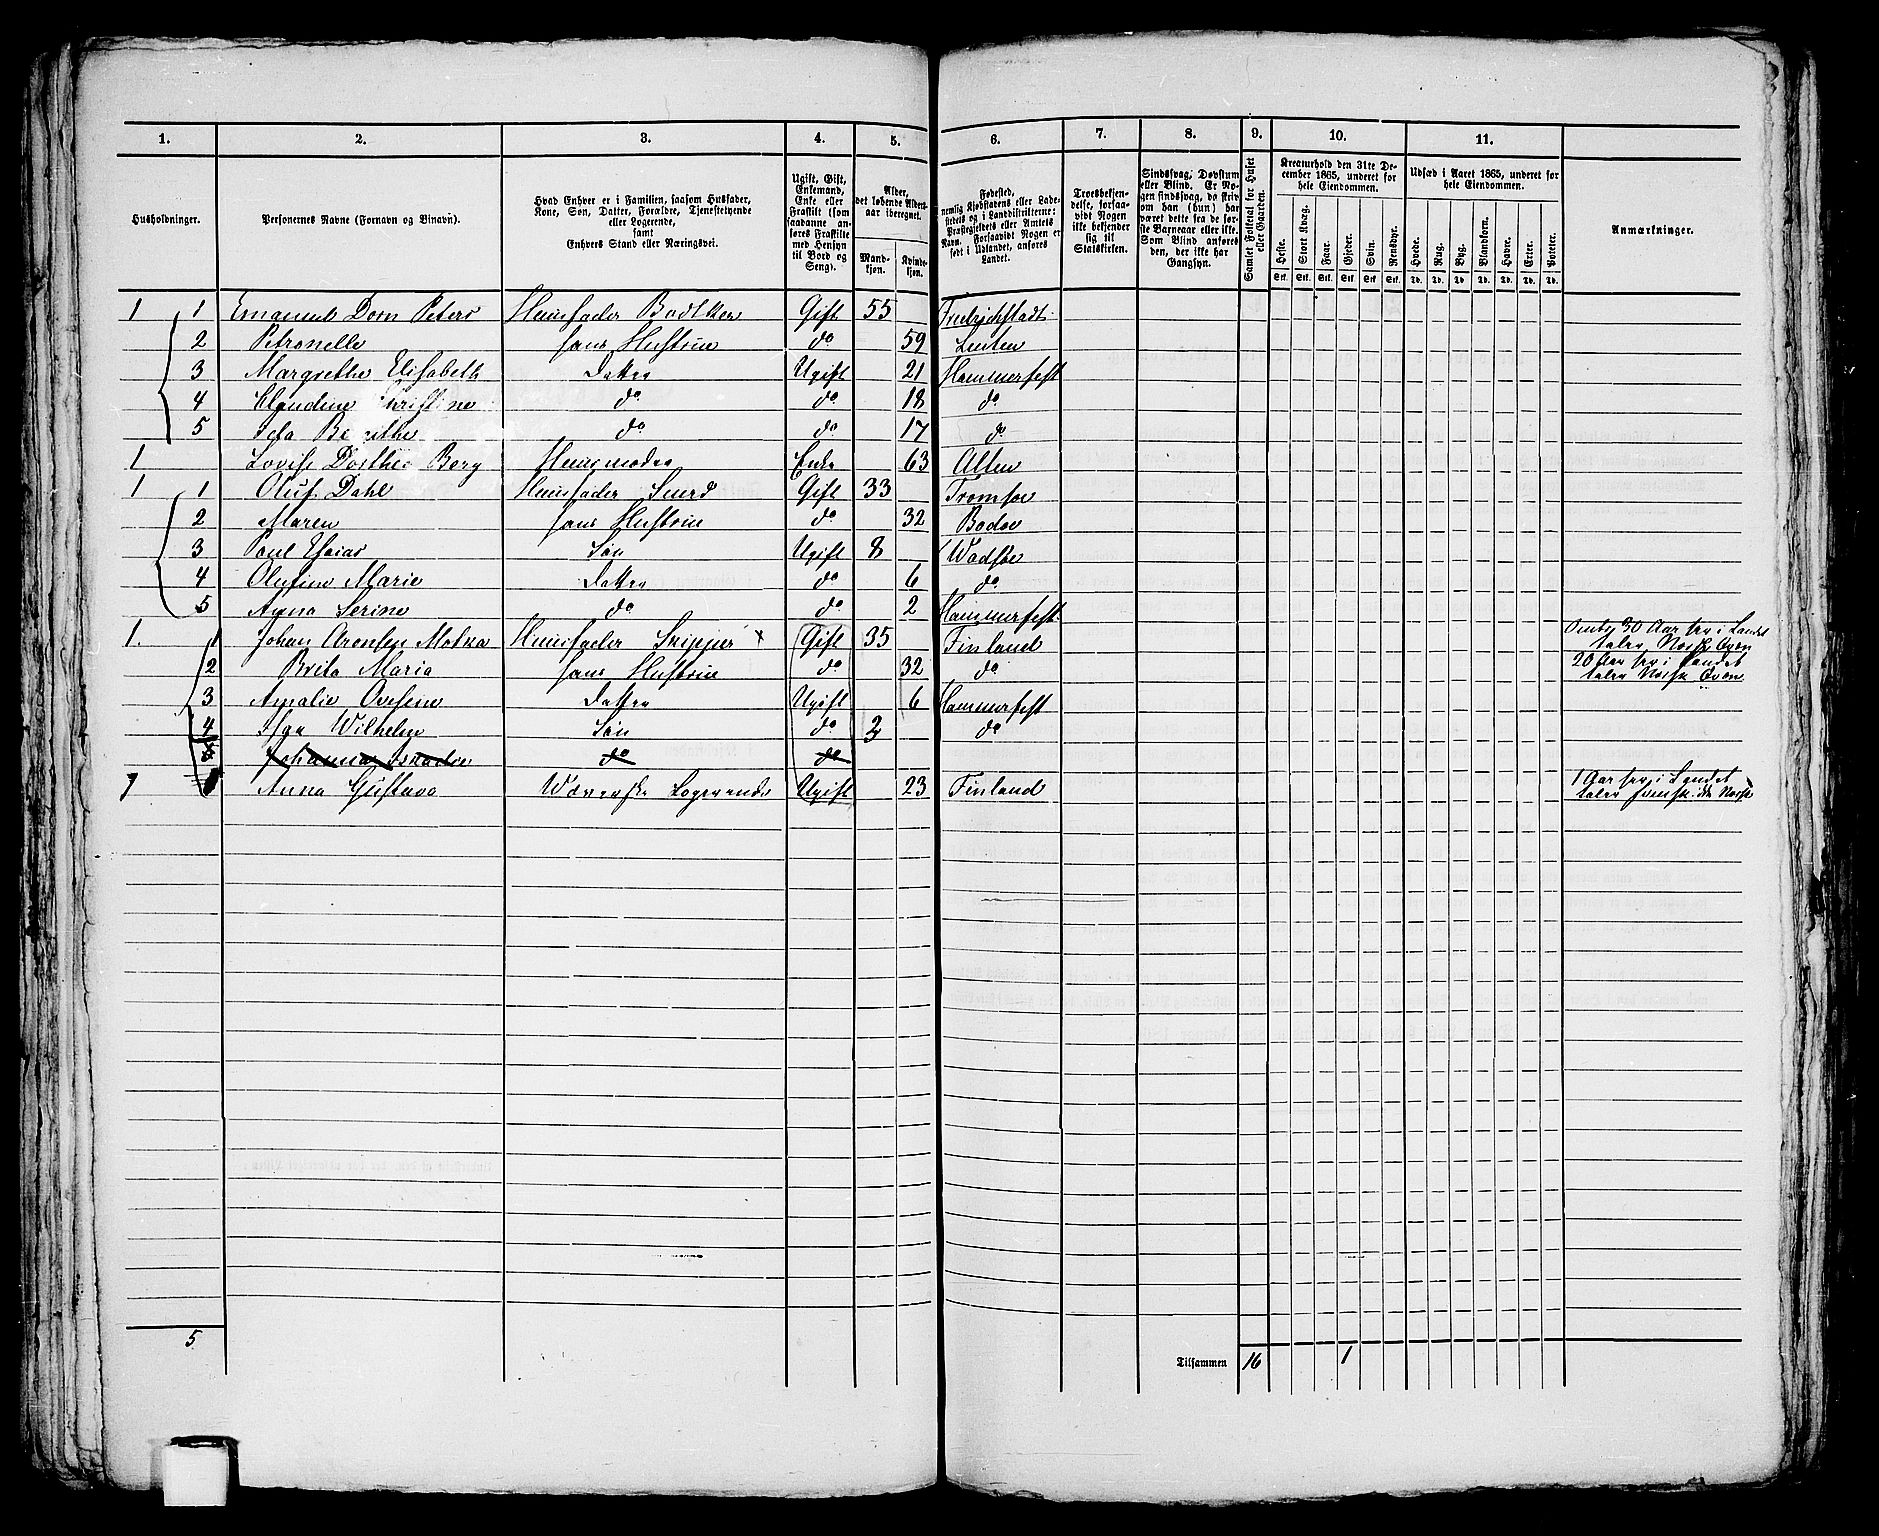 1. 2. 3. 4. 5. 6. 7. 8. 9. 10. 11.
Husholdninger.
Personernes Navne (Fornavn og Binavn).
Hvad Enhver er i Familien, saasom Husfader,
Kone, Søn, Datter, Forældre, Tjenestetyende
eller Logerende,
samt
Enhvers Stand eller Næringsvei.
Ugift, Gift,
Enkemand,
Enke eller
Fraskilt (som
saadanne an-
føres Fraskilte
med Hensyn
til Bord og
Seng).
Alder,
det løbende Alders-
aar iberegnet.
Mand-
kjøn.
Kvinde-
kjøn.
Fødested,
nemlig Kjøbstadens eller Lade-
stedets og i Landdistrikterne:
Præstegjeldets eller Amtets
Navn. Forsaavidt Nogen er
født i Udlandet, anføres
Landet.
Troesbekjen-
delse, forsaa-
vidt Nogen
ikke bekjender
sig til
Statskirken.
Sindssvag, Døvstum
eller Blind. Er No-
gen sindssvag, da skriv
om han (hun) har
været dette fra de før-
ste Barneaar eller ikke.
Som Blind anføres
den, der ikke har
Gangsyn.
Samlet Folketal for Huset
eller Gaarden.
Kreaturhold den 31te De-
cember 1865, underet for
hele Eiendommen.
Heste. Stort Kvæg. Faar. Gjeder. Svin. Rensdyr.
Stk. Stk. Stk. Stk. Stk. Stk.
Udsæd i Aaret 1865, underet for
hele Eiendommen.
Hvede. Rug. Byg. Blandkorn. Havre. Erter. Poteter.
Td. Td. Td. Td. Td. Td. Td.
Anmærkninger.
1 1 Emanuel Dorn Peters Huusfader Bødtker Gift 55 Fredrichstadt
2 Petronelle hans Hustrue do 59
3 Margrethe Elisabeth Datter Ugift 21 Hammerfest
4 Claudine Christine do do 18 do
5 do do 17 do
1 Lovise Dorthea Berg Huusmoder Enke 63 Alten
1 1 Oluf Dahl Huusfader Smed Gift 33 Tromsøe
2 Maren hans Hustrue do 32 Bodøe
3 Poul Esaias Søn Ugift 8 Wadsøe
4 Olufine Marie Datter do 6 do
5 Anna Serine do do 2 Hammerfest
1. 1 Johan Aronsen Motka Huusfader Skipper x Gift 35 Finland 30 Aar her i Landet
taler Norsk Qvæn
2 Brita Maria hans Hustrue do 32 do 20 Aar her i Landet
taler Norsk Qvæn
3 Amalie Ovesine Datter Ugift 6 Hammerfest
4 Isak Wilhelm Søn do 2 do
5 do do
1 Anna Gustava Logerende Ugift 23 Finland 1 Aar her i Landet
taler svensk ikke Norsk
5 Tilsammen 16 1